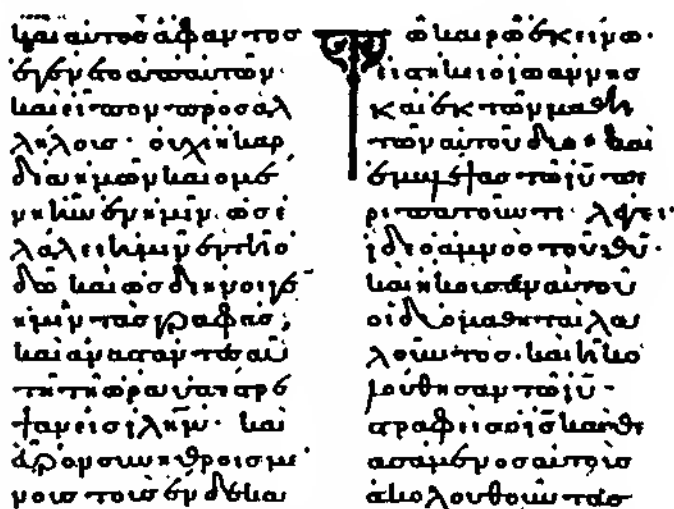 καὶ αὐτὸς ἄφαντος
ἐγένετο ἀπ' αὐτῶν·
καὶ εἶπον πρὸς ἀλ
λήλοις· οὐχὶ ἡ καρ
δία ἡμῶν καιομέ
νη ἦν ἐν ἡμῖν· ὡς ἐ
λάλει ἡμῖν ἐν τῇ ὁ
δῷ καὶ ὡς διήνοιγε
ἡμῖν τὰς γραφάς;
καὶ ἀναστάντες αὐ
τῇ τῇ ὥρᾳ
ψαν εἰς ἰλημ̄· καὶ
συνηθροισμέ
νους τοὺς ἕνδεκα
Τῷ καιρῷ ἐκείνῳ·
ὁ ἰωάννης
καὶ ἐκ τῶν μαθη
τῶν αὐτοῦ δύο· καὶ
ἐμβλέψας τῷ ἰῡ πε
ριπατοῦντι λέγει·
ἴδε ὁ ἀμνὸς τοῦ θῡ·
καὶ ἤκουσαν αὐτοῦ
οἱ δύο μαθηταὶ λα
λοῦντος· καὶ ἠκο
λούθησαν τῷ ἰῡ·
στραφεὶς ὁ ἰς̄ καὶ θε
ασάμενος αὐτοὺς
ἀκολουθοῦντας